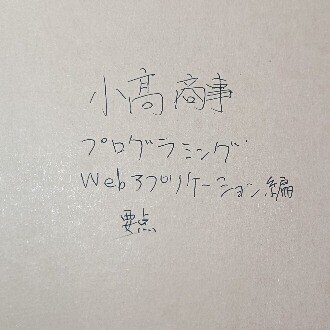 小高商事
プログラミング
Webアプリケーション編
要点